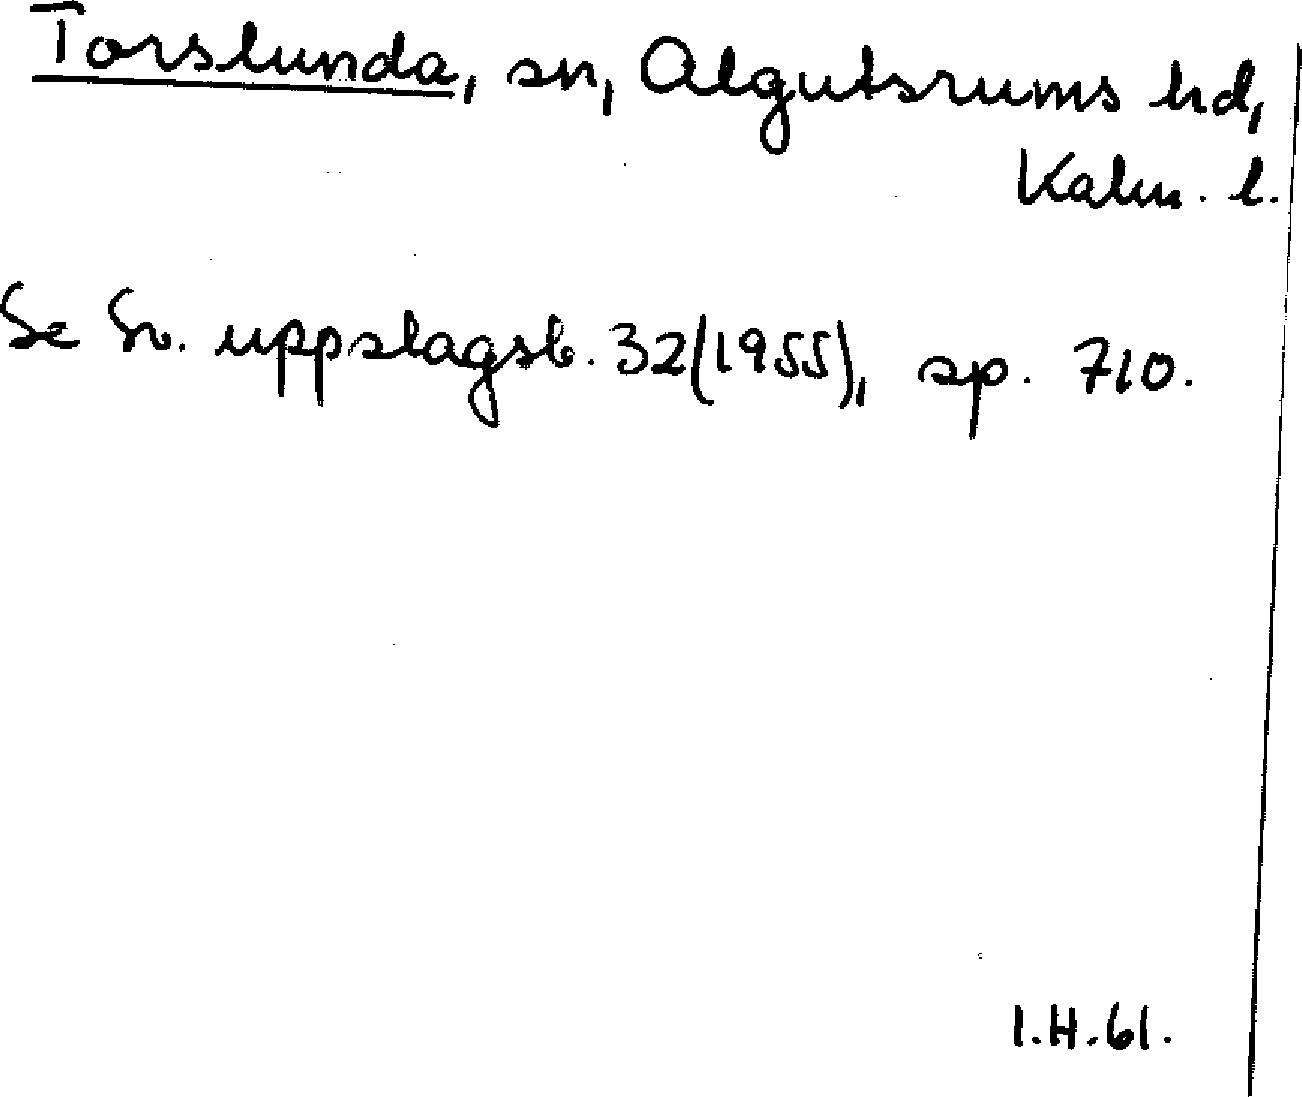 Torslunda, sn, Algutsrums hd,
Kalm. l.
Se Sv. uppslagsb. 32(1955), sp. 710.
I.H.61.